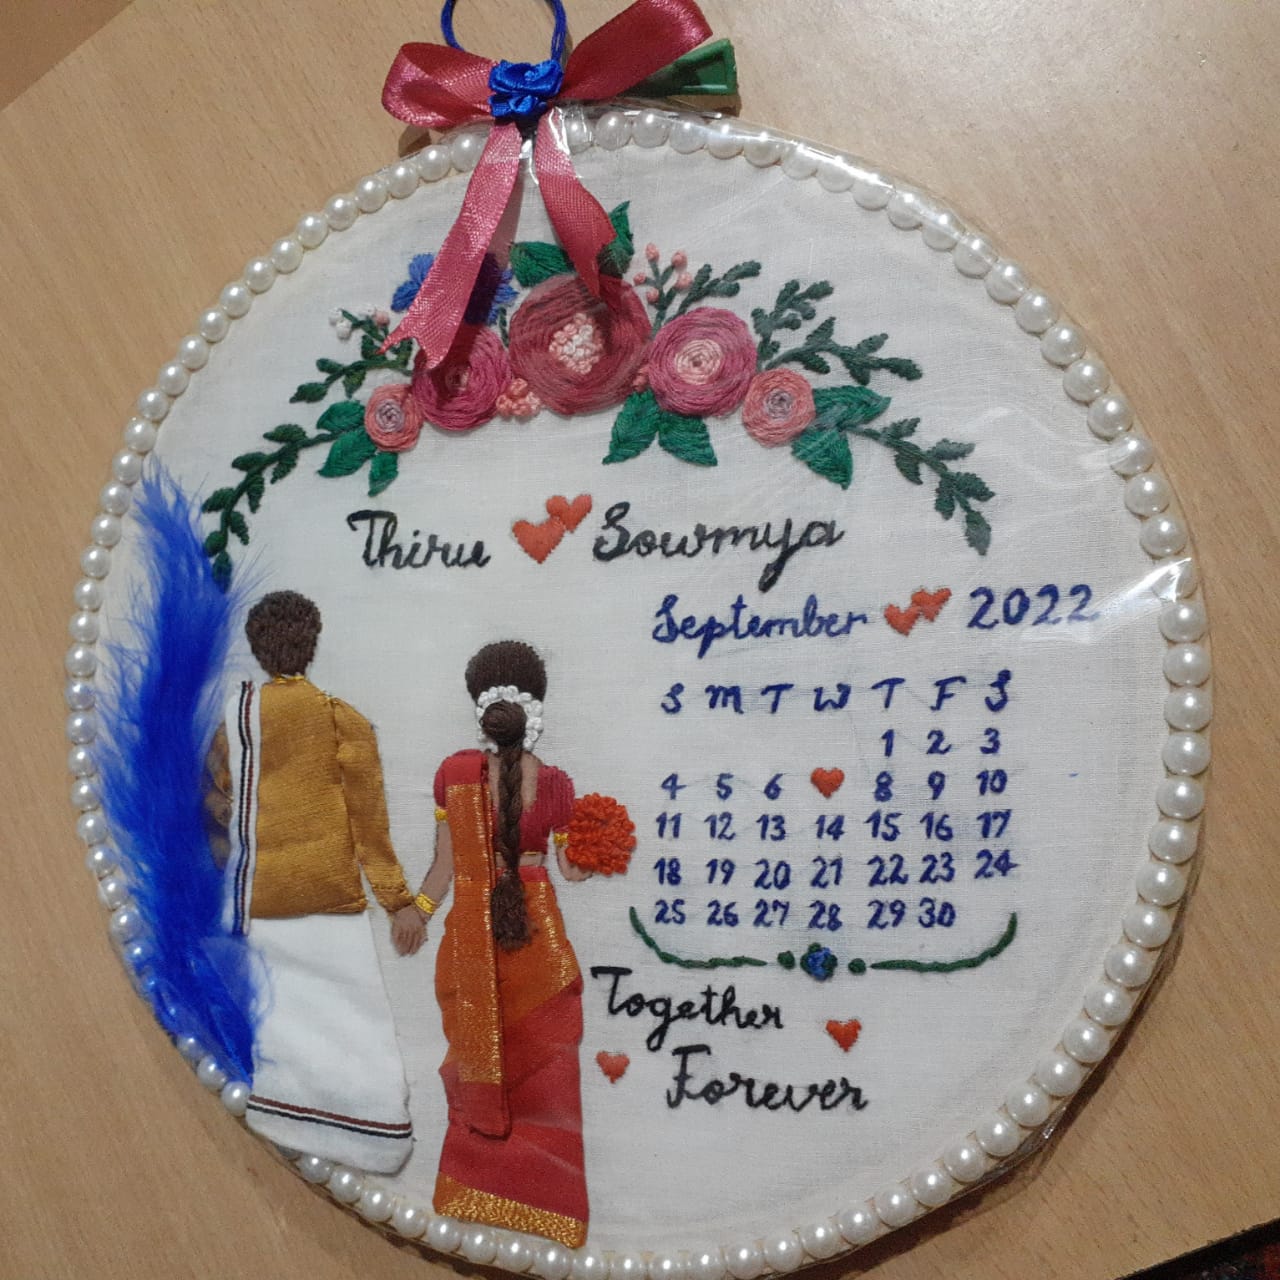 Thiru Sowmya
September 2022
S M T W T F S
1 2 3
4 5 6 8 9 10
11 12 13 14 15 16 17
18 19 20 21 22 23 24
25 26 27 28 29 30
Together
Forever